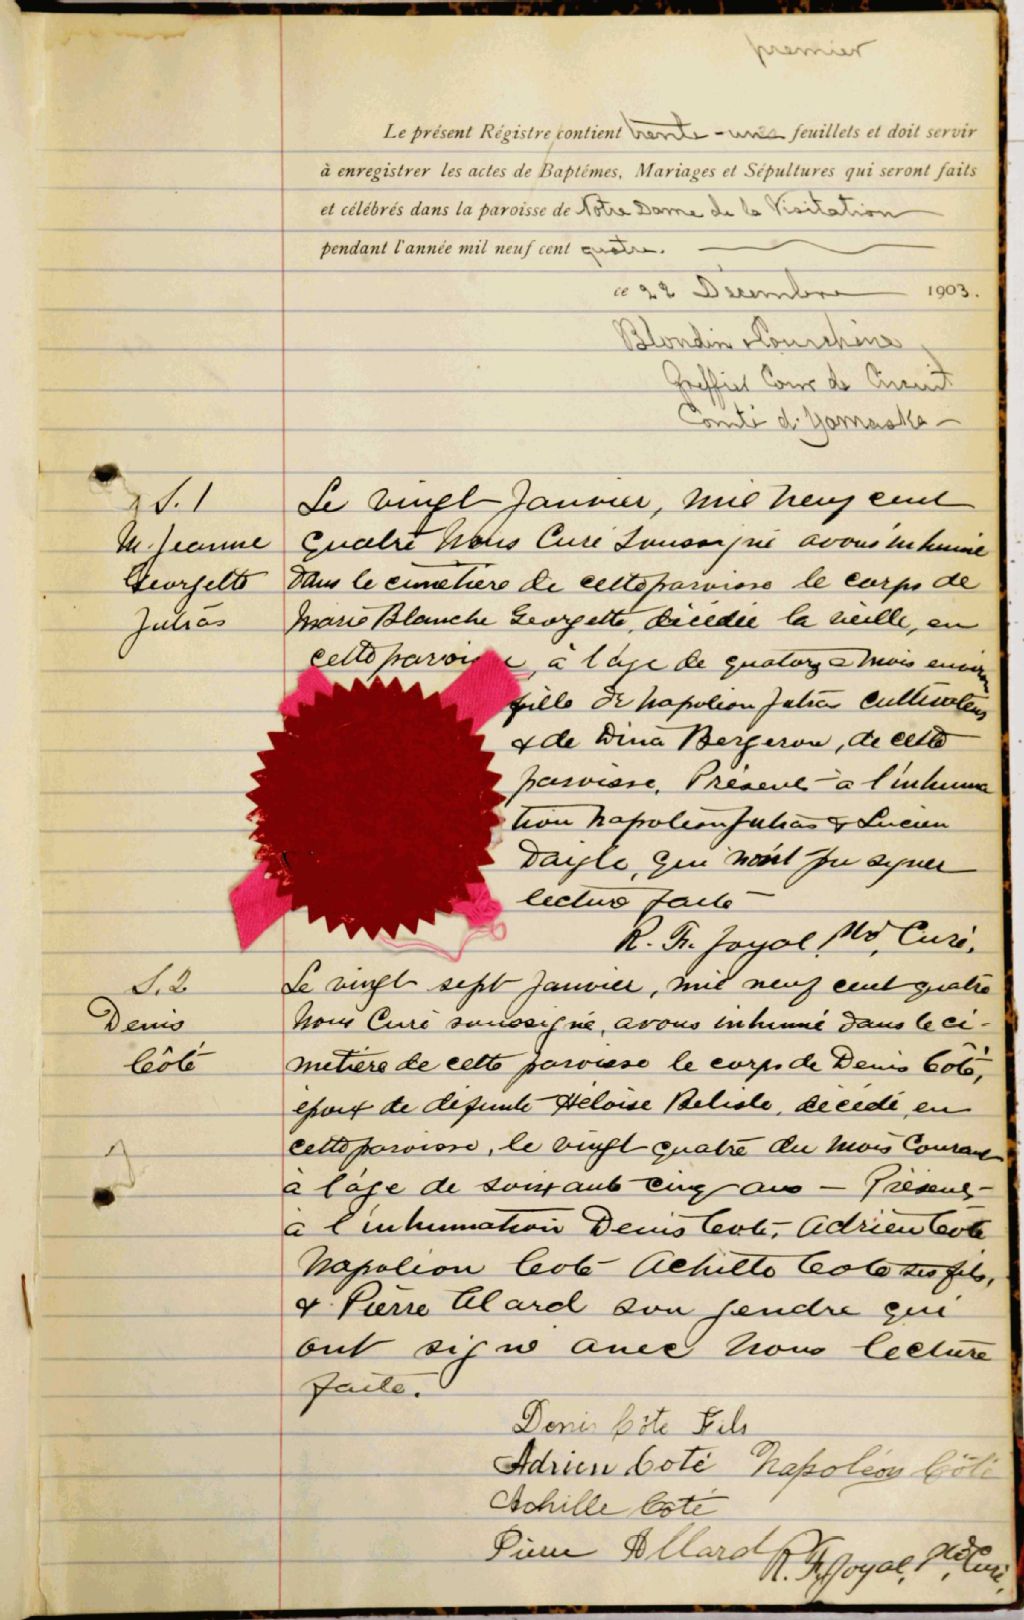 premier
Le présent Régistre contient trente-une feuillets et doit servir
à enregistrer les actes de Baptêmes, Mariages et Sépultures qui seront faits
et célébrés dans la paroisse de Notre Dame de la Visitation
pendant l'année mil neuf cent quatre.
ce 22 Décembre 1903.
Blondin & Courchène
Greffier Cour de Circuit
Comté d'Yamaska
S. 1
M. Jeanne
Georgette
Jutras
Le vingt Janvier, mil neuf cent
quatre Nous Curé soussigné avons inhumé
dans le cimetière de cette paroisse le corps de
Marie Blanche Georgette, décédée la veille, en
cette paroisse, à l'âge de quatorze mois environ
fille de Napoléon Jutras cultivateur
& de Dina Bergeron, de cette
paroisse. Présents à l'inhuma
tion Napoléon Jutras & Lucien
Daigle, qui n'ont pu signer
lecture faite
R. Fr. Joyal, Ptre, Curé.
S. 2
Denis
Côté
Le vingt sept Janvier, mil neuf cent quatre
Nous Curé soussigné, avons inhumé dans le ci-
metière de cette paroisse le corps de Denis Côté,
époux de défunte Héloïse Belisle, décédé, en
cette paroisse, le vingt quatre du mois courant
à l'âge de soixante cinq ans — Présents
à l'inhumation Denis Coté, Adrien Coté
Napoléon Coté Achille Coté ses fils,
& Pierre Alard son gendre qui
ont signé avec Nous lecture
faite.
Denis Côte Fils
Adrien Coté Napoléon Côté
Achille Coté
Pierre Allard
R. Fr. Joyal, Ptre, Curé.